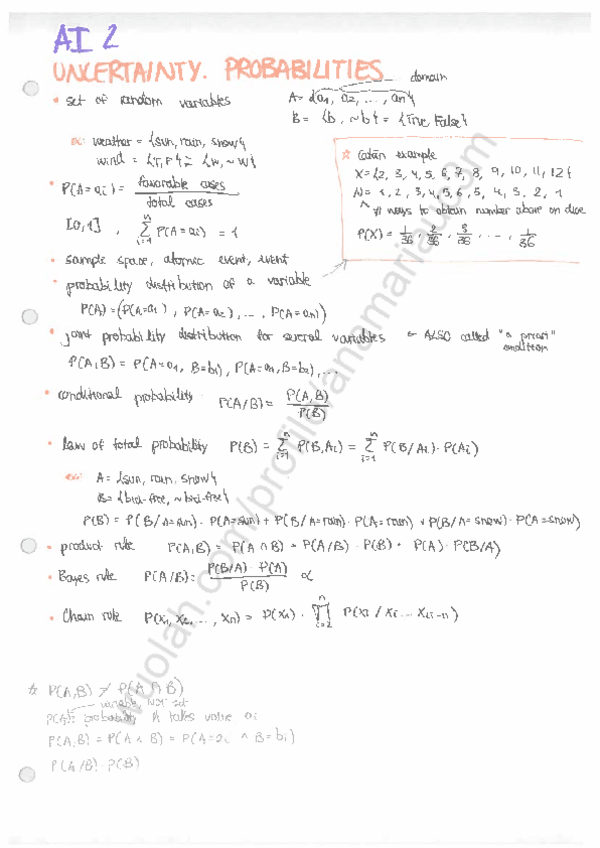 AI 2
UNCERTAINTY. PROBABILITIES
domain
• set of random variables A = {a1, a2, ..., an}
B = {b, ~b} = {True, False}
ex: weather = {sun, rain, snow}
wind = {T, F} = {w, ~w}
☆ Catan example
X = {2, 3, 4, 5, 6, 7, 8, 9, 10, 11, 12}
N = 1, 2, 3, 4, 5, 6, 5, 4, 3, 2, 1
^ # ways to obtain number above on dice
P(X) = 1/36, 2/36, 3/36, ..., 1/36
• P(A=ai) = favorable cases / total cases
[0,1], Σ i=1 n P(A=ai) = 1
• sample space, atomic event, event
• probability distribution of a variable
P(A) = (P(A=a1), P(A=a2), ..., P(A=an))
• joint probability distribution for several variables ← ALSO called "a priori" condition
P(A,B) = P(A=a1, B=b1), P(A=a1, B=b2), ...
• conditional probability P(A/B) = P(A,B) / P(B)
• law of total probability P(B) = Σ i=1 n P(B,Ai) = Σ i=1 n P(B/Ai) · P(Ai)
ex: A = {sun, rain, snow}
B = {bici-free, ~bici-free}
P(B) = P(B/A=sun) · P(A=sun) + P(B/A=rain) · P(A=rain) + P(B/A=snow) · P(A=snow)
• product rule P(A,B) = P(A ∩ B) = P(A/B) · P(B) = P(A) · P(B/A)
• Bayes rule P(A/B) = P(B/A) · P(A) / P(B) α
• Chain rule P(x1, x2, ..., xn) = P(x1) · Π i=2 n P(xi / x1 ... xi-1)
☆ P(A,B) ≠ P(A ∩ B)
variable, NOT set
P(A): probability A takes value ai
P(A,B) = P(A ∧ B) = P(A=ai ∧ B=bi)
P(A/B) · P(B)
wuolah.com/profile/anamariauc3m